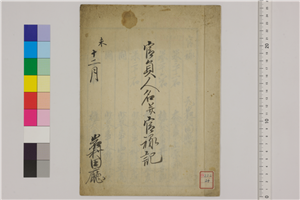 官員人名并官禄記
未
十二月
岩村田廳